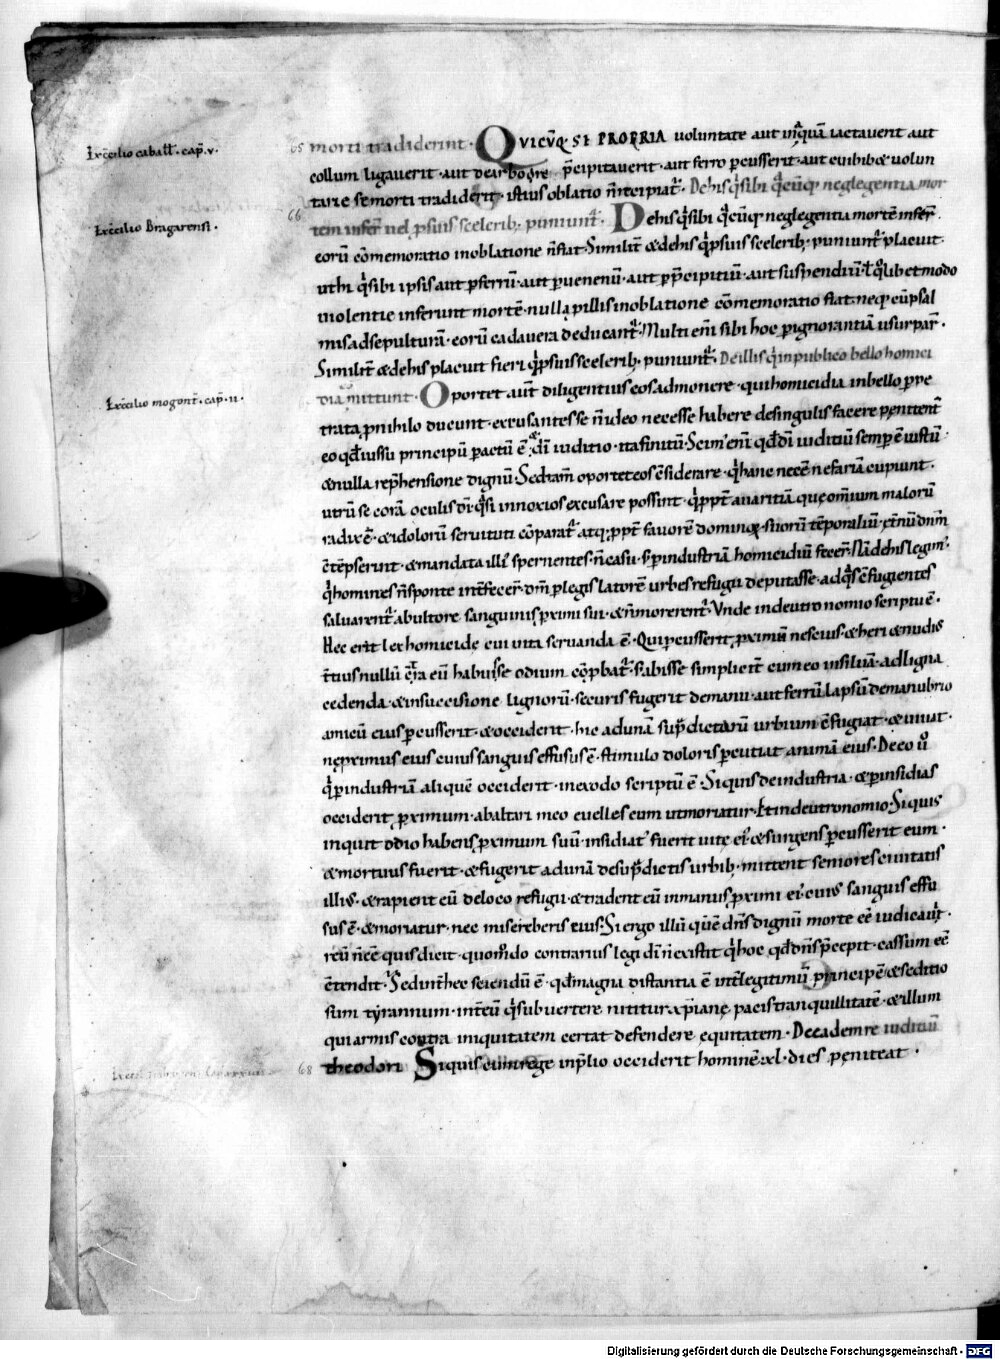 Ex c̄cilio caball̄. cap̄. v.
65 morti tradiderint. QVICŪQ; SE PROPRIA voluntate aut in aquā iactaverit aut
collum ligaverit. aut de arbore p̄cipitaverit. aut ferro percusserit. aut cuilibet volun
tarie se morti tradiderit. istius oblatio n̄ recipiat᷒. De his qͥ sibi quacūq; neglegentia mor
Ex c̄cilio Bragarensi.
66 tem infer̄ vel p suis sceleribꝫ puniunt᷒. De his qͥ sibi quacūq; neglegentia mortē infer̄
eorū cōmemoratio in oblatione n̄ fiat. Similit̄ & de his qͥ p suis sceleribꝫ puniunt᷒ placuit.
uthi qͥ sibi ipsis aut p ferrū. aut p venenū. aut p p̄cipitiū. aut suspendiū. ł qͦlibet modo
violentie inferunt mortē. nulla p illis in oblatione cōmemoratio fiat. neq; cū psal
mis ad sepulturā. eorū cadavera deducant᷒. Multi eni sibi hoc p ignorantiā usurpar̄.
Similit̄ & de his placuit fieri qͥ p suis sceleribꝫ puniunt᷒. De illis qͥ in publico bello homici
Ex c̄cilio mogont̄. cap̄. ii.
dia mittunt. Oportet aut̄ diligentius eos admonere. qui homicidia in bello ppe
trata p nihilo ducunt. excusantes se n̄ ideo necesse habere de singulis facere penitent̄
eo qd̄ iussu principū pactū ē & dī iuditio. ita finitū. Scim᷒ eni qd̄ dī iuditiū semp ē iustū
& nulla rep̄hensione dignū. Sed tam̄ oportet eos c̄siderare. qͥ hanc necē nefariā cupiunt.
utrū se corā oculis dī. qͣsi innoxios excusare possint. qͥ ppt̄ avaritiā que omnium malorū
radix ē. & idolorū servituti cōparat᷒. atq; ppt̄ favorē dominoꝝ suorū tēporaliū. et̄nū dnm̄
c̄tēpserunt. & mandata illi᷒ spernentes. n̄ casu. s; p industriā homicidiū fecer̄. Nā de his legim᷒.
qͥ homines n̄ sponte int̄fecer̄. dm̄ p legislatorē urbes refugii deputasse. ad qͣs c̄fugientes
salvarent᷒ ab ultore sanguinis proximi sui. & n̄ morerent᷒. Unde in deutronomio scriptū ē.
Hec erit lex homicide cui vita servanda ē. Qui percusserit proximū nescius. & heri & nudis
t̄tius nullū c̄tra eū habuisse odium cōpbat᷒. s; abisse simplicit̄ cum eo in silvā. ad ligna
cedenda. & in succisione lignorū. securis fugerit de manu. aut ferrū lapsū de manubrio
amicū eius percusserit. & occiderit. hic ad unā sup̄dictarū urbium c̄fugiat. & vivat.
ne proximus eius cuius sanguis effusus ē. stimulo doloris percutiat animā eius. De eo v̄
qͥ p industriā aliquē occiderit. in exodo scriptū ē. Si quis de industria. & p insidias
occiderit proximum. ab altari meo evelles eum ut moriatur. Et in deutronomio. Si quis
inquit odio habens proximum suū. insidiat᷒ fuerit vite ei᷒. & surgens percusserit eum.
& mortuus fuerit. & fugerit ad unā de sup̄dictis urbibꝫ. mittent seniores civitatis
illi᷒. & rapient eū de loco refugii. & tradent eū in manus proximi ei᷒ cuius sanguis effu
sus ē. & moriatur. nec misereberis eius. Si ergo illū quē dn̄s dignū morte eē iudicavit.
reū n̄ eē quis dicit. quom̄do contrarius legi dī n̄ existit qͥ hoc qd̄ dn̄s p̄cepit. cassum eē
c̄tendit. Sed in hec sciendū ē. qd̄ magna distantia ē int̄ legitimū principē & seditio
sum tyrannum. int̄ eū qͥ subvertere nititur xpiane pacis tranquillitatē. & illum
qui armis contra iniquitatem certat defendere equitatem. De eadem re iuditiū
68 theodori Si quis cum rege in plio occiderit hominē xl. dies peniteat.